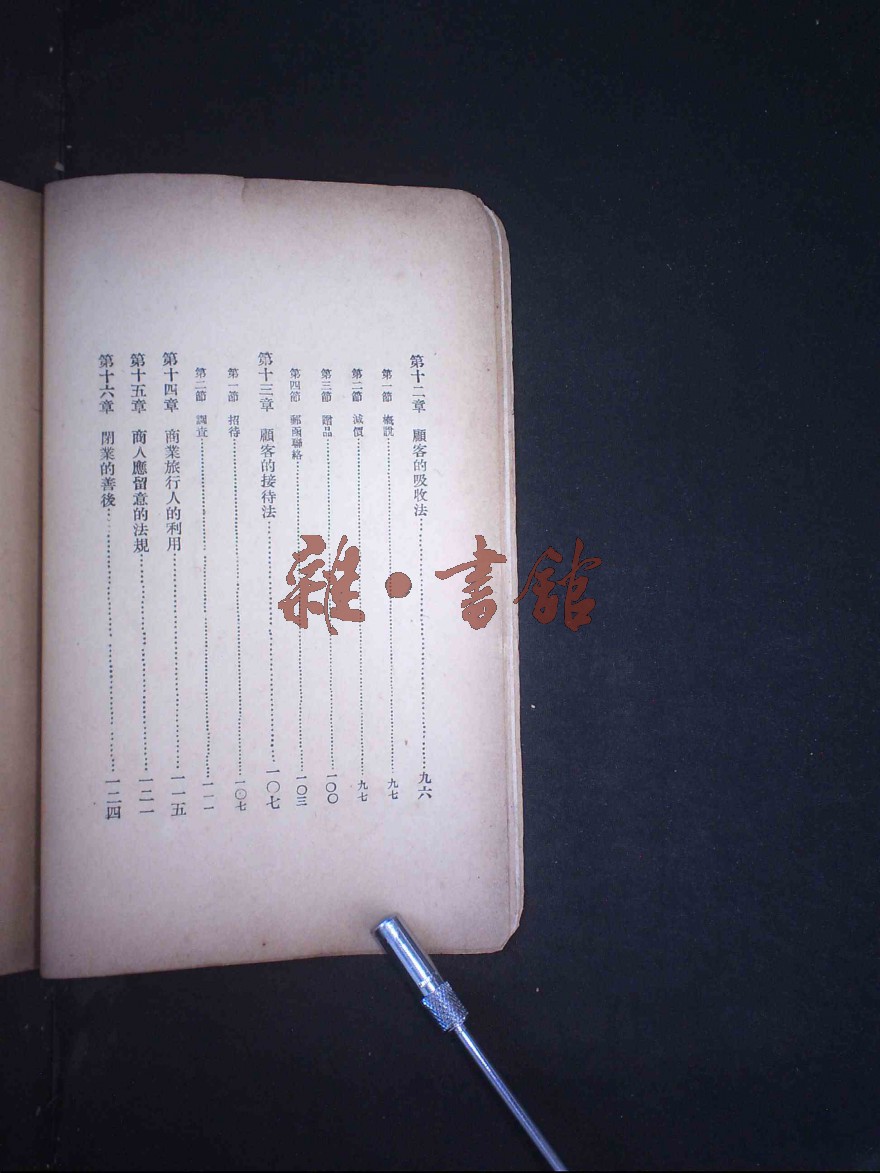 第十二章　顧客的吸收法……九六
第一節　概說……九七
第二節　減價……九七
第三節　贈品……一〇〇
第四節　郵函聯絡……一〇三
第十三章　顧客的接待法……一〇七
第一節　招待……一〇七
第二節　調查……一一一
第十四章　商業旅行人的利用……一一五
第十五章　商人應留意的法規……一二一
第十六章　閉業的善後……一二四
雜·書館